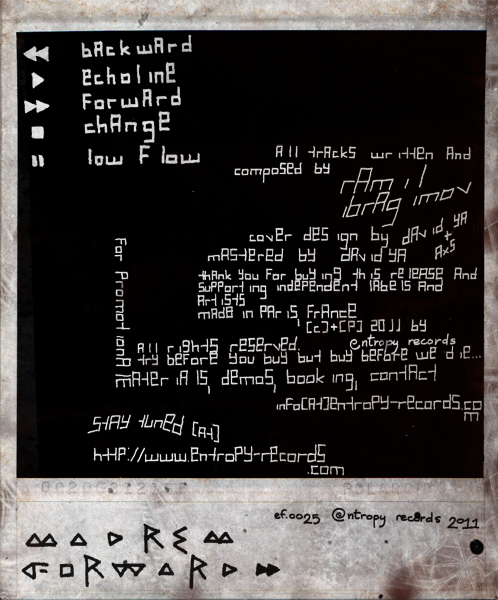 bAckwArd
Echoline
ForwArd
chAngE
low Flow
All trAcks written And
composed by
rAmil
ibrAgimov
cover design by dAvid YA
+
AxS
mAstered by dAvid YA
thAnk you For buying this release And
Supporting independent lAbels And
Artists
mAdE in PAris FrAncE
[c]+[P] 2011 by
@ntropy records
All rights reserved.
try before you buy but buy before we die...
For PromotionAl
mAteriAls, demos, booking, contAct
info[At]EntroPy-rEcords.com
StAy tunEd [At]
http://www.EntroPy-rEcords
.com
ef.0025 @ntropy records 2011